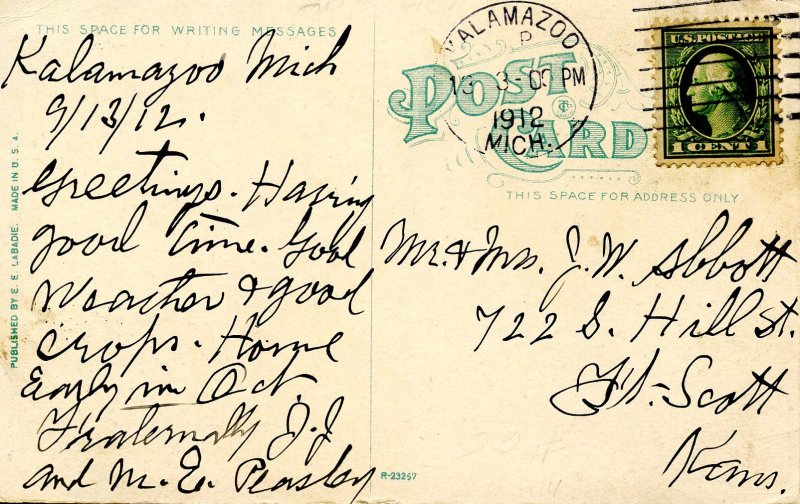 THIS SPACE FOR WRITING MESSAGES
Kalamazoo Mich
9/13/12.
Greetings. Having
good time. Good
Weather & good
crops. Home
Early in Oct
Fraternally J.J.
and M. E. Peasley
PUBLISHED BY E. E. LABADIE. MADE IN U.S.A.
POST CARD
THIS SPACE FOR ADDRESS ONLY
KALAMAZOO
P
13 3-00 PM
1912
MICH.
U.S. POSTAGE
1 CENT 1
Mr. & Mrs. J. W. Abbott
722 S. Hill st.
Ft. Scott
Kans.
R-23257